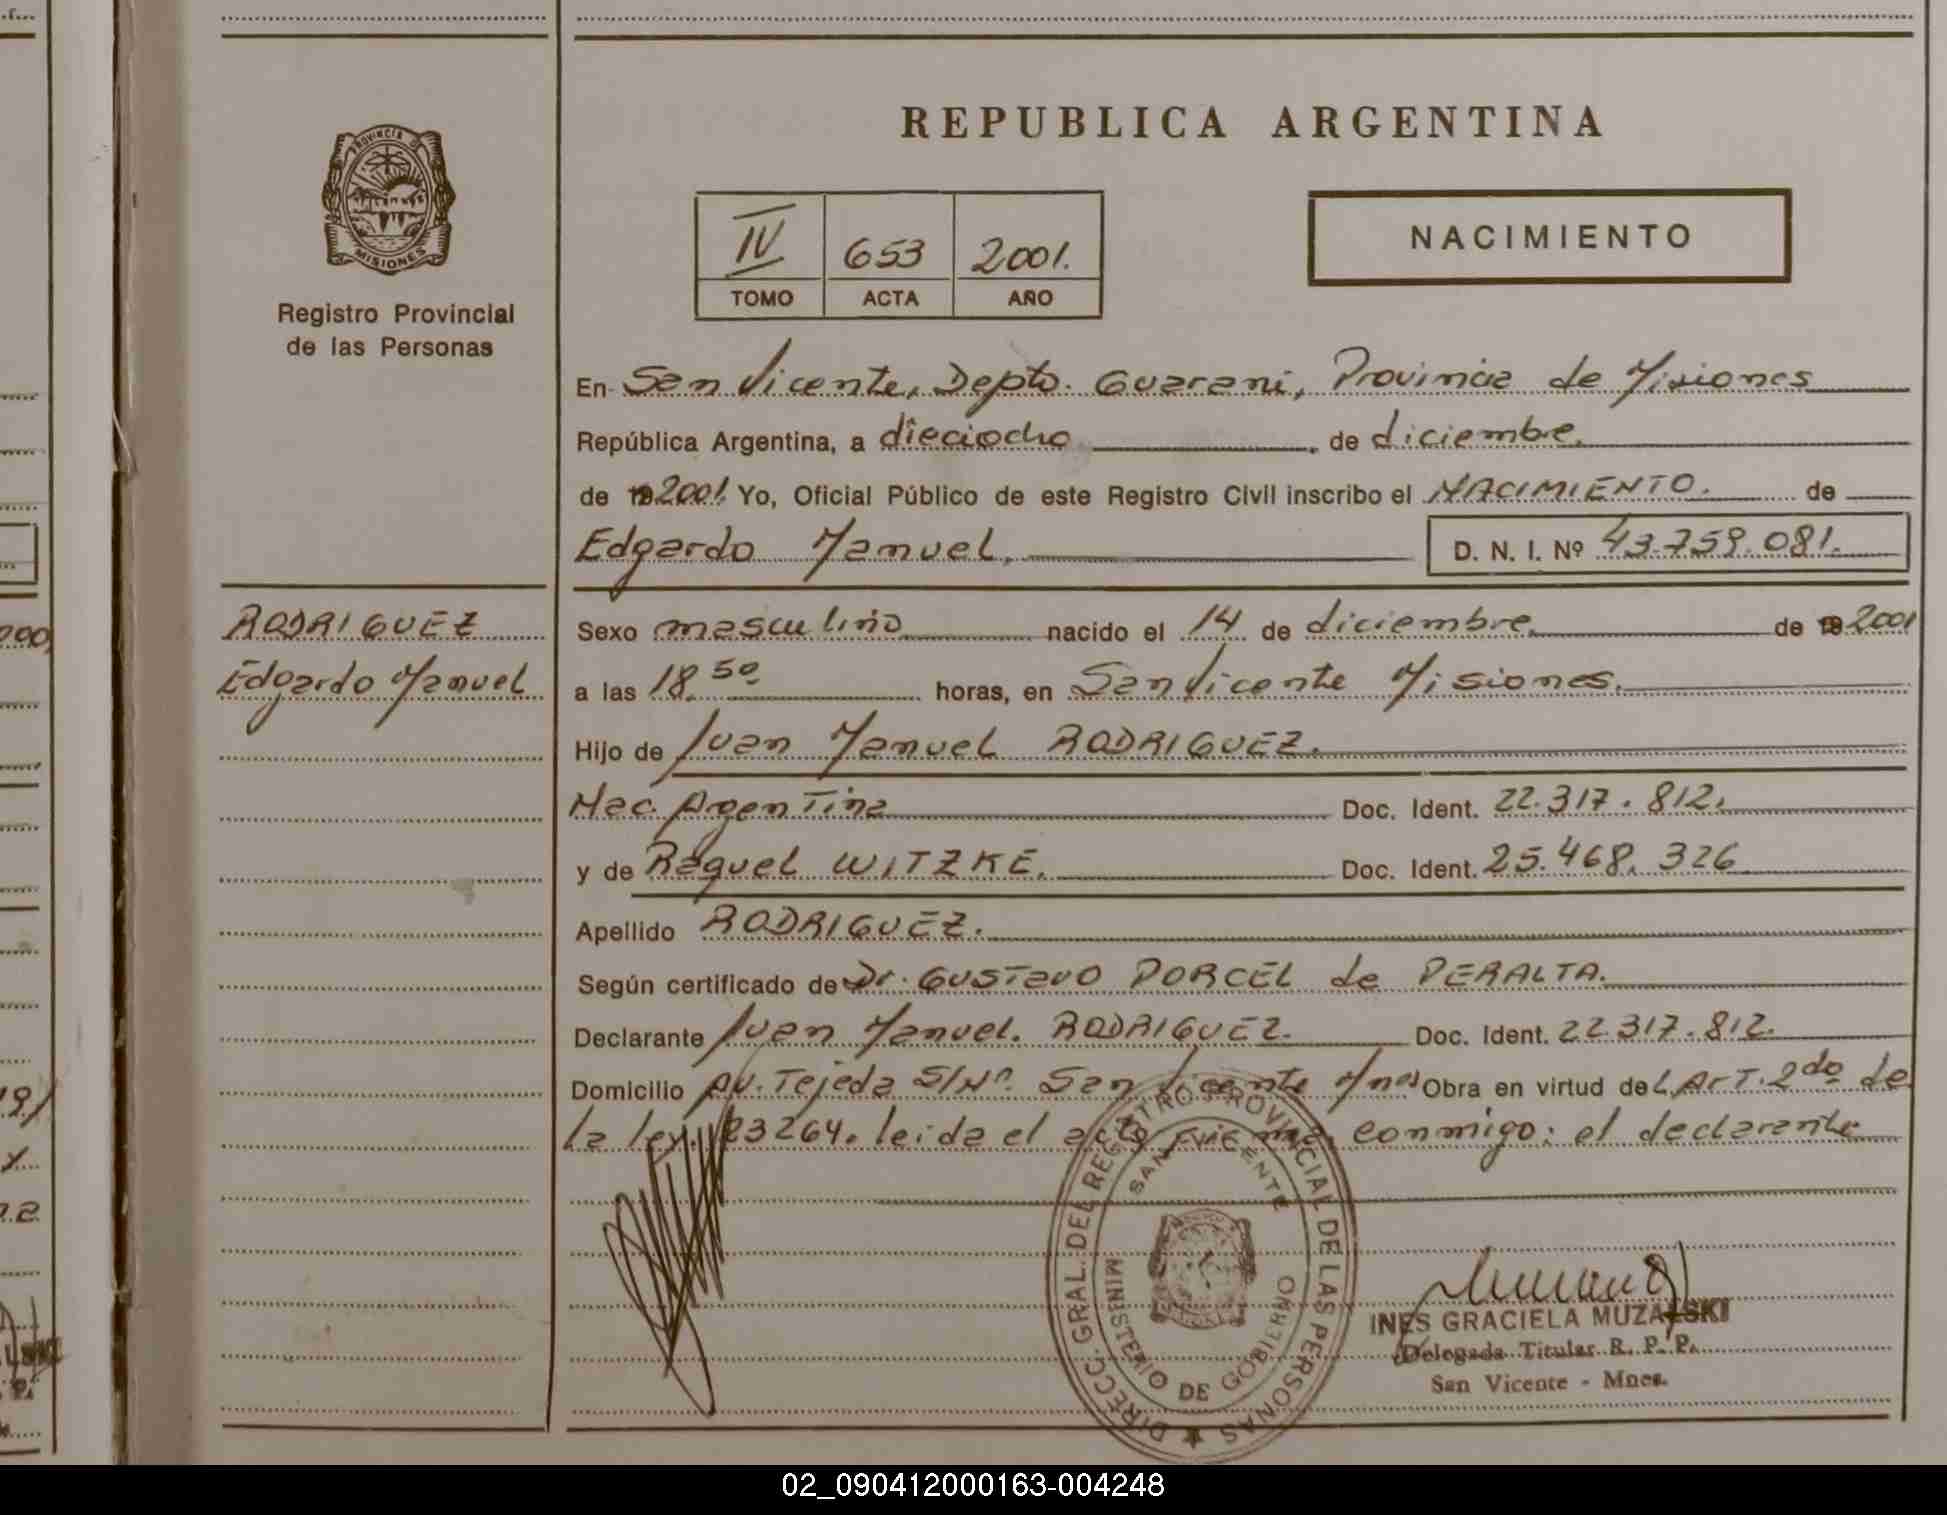 REPUBLICA ARGENTINA
PROVINCIA DE
MISIONES
Registro Provincial
de las Personas
IV 653 2001.
TOMO ACTA AÑO
NACIMIENTO
En San Vicente, Depto. Guarani, Provincia de Misiones
República Argentina, a dieciocho, de diciembre.
de 19 2001. Yo, Oficial Público de este Registro Civil inscribo el NACIMIENTO. de
Edgardo Manuel. D. N. I. Nº 43.759.081.
RODRIGUEZ
Edgardo Manuel
Sexo masculino nacido el 14 de diciembre. de 19 2001
a las 18.50 horas, en San Vicente Misiones.
Hijo de Juan Manuel RODRIGUEZ.
Nac. Argentina Doc. Ident. 22.317.812.
y de Raquel WITZKE. Doc. Ident. 25.468.326
Apellido RODRIGUEZ.
Según certificado de Dr. GUSTAVO PORCEL de PERALTA.
Declarante Juan Manuel. RODRIGUEZ. Doc. Ident. 22.317.812.
Domicilio AV. Tejeda S/Nº. San Vicente Mnes Obra en virtud del ArT. 2do de
la ley. 23264. leida el acta firma. conmigo: el declarante
DIRECC. GRAL. DEL REGISTRO PROVINCIAL DE LAS PERSONAS
SAN VICENTE
MINISTERIO DE GOBIERNO
INES GRACIELA MUZALSKI
Delegada Titular R. P. P.
San Vicente - Mnes.
02_090412000163-004248